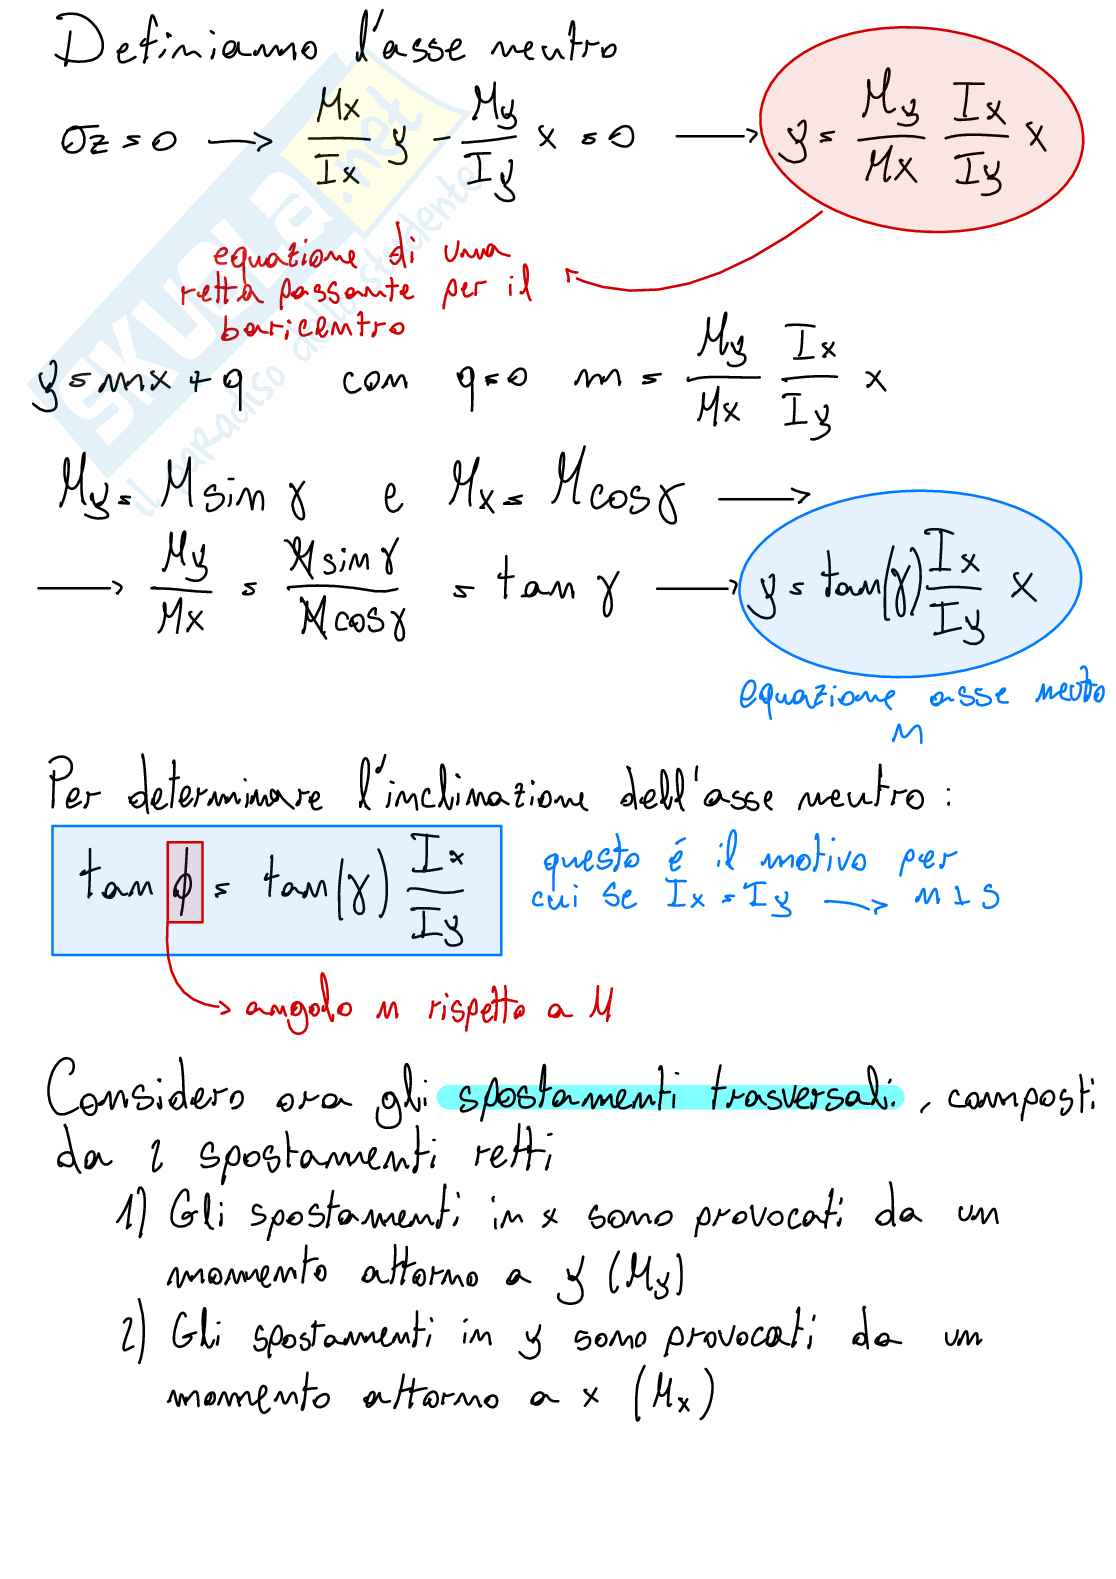 Definiamo l'asse neutro
σz = 0 → Mx/Ix y - My/Iy x = 0 → y = My/Mx Ix/Iy x
equazione di una
retta passante per il
baricentro
y = mx + q con q = 0 m = My/Mx Ix/Iy x
My = M sin γ e Mx = M cos γ →
→ My/Mx = M sin γ/M cos γ = tan γ → y = tan(γ) Ix/Iy x
equazione asse neutro
n
Per determinare l'inclinazione dell'asse neutro :
tan ϕ = tan(γ) Ix/Iy
questo é il motivo per
cui se Ix = Iy → n ⊥ s
→ angolo n rispetto a M
Considero ora gli spostamenti trasversali, composti
da 2 spostamenti retti
1) Gli spostamenti in x sono provocati da un
momento attorno a y (My)
2) Gli spostamenti in y sono provocati da un
momento attorno a x (Mx)
SKUOLA.net
il paradiso dello studente